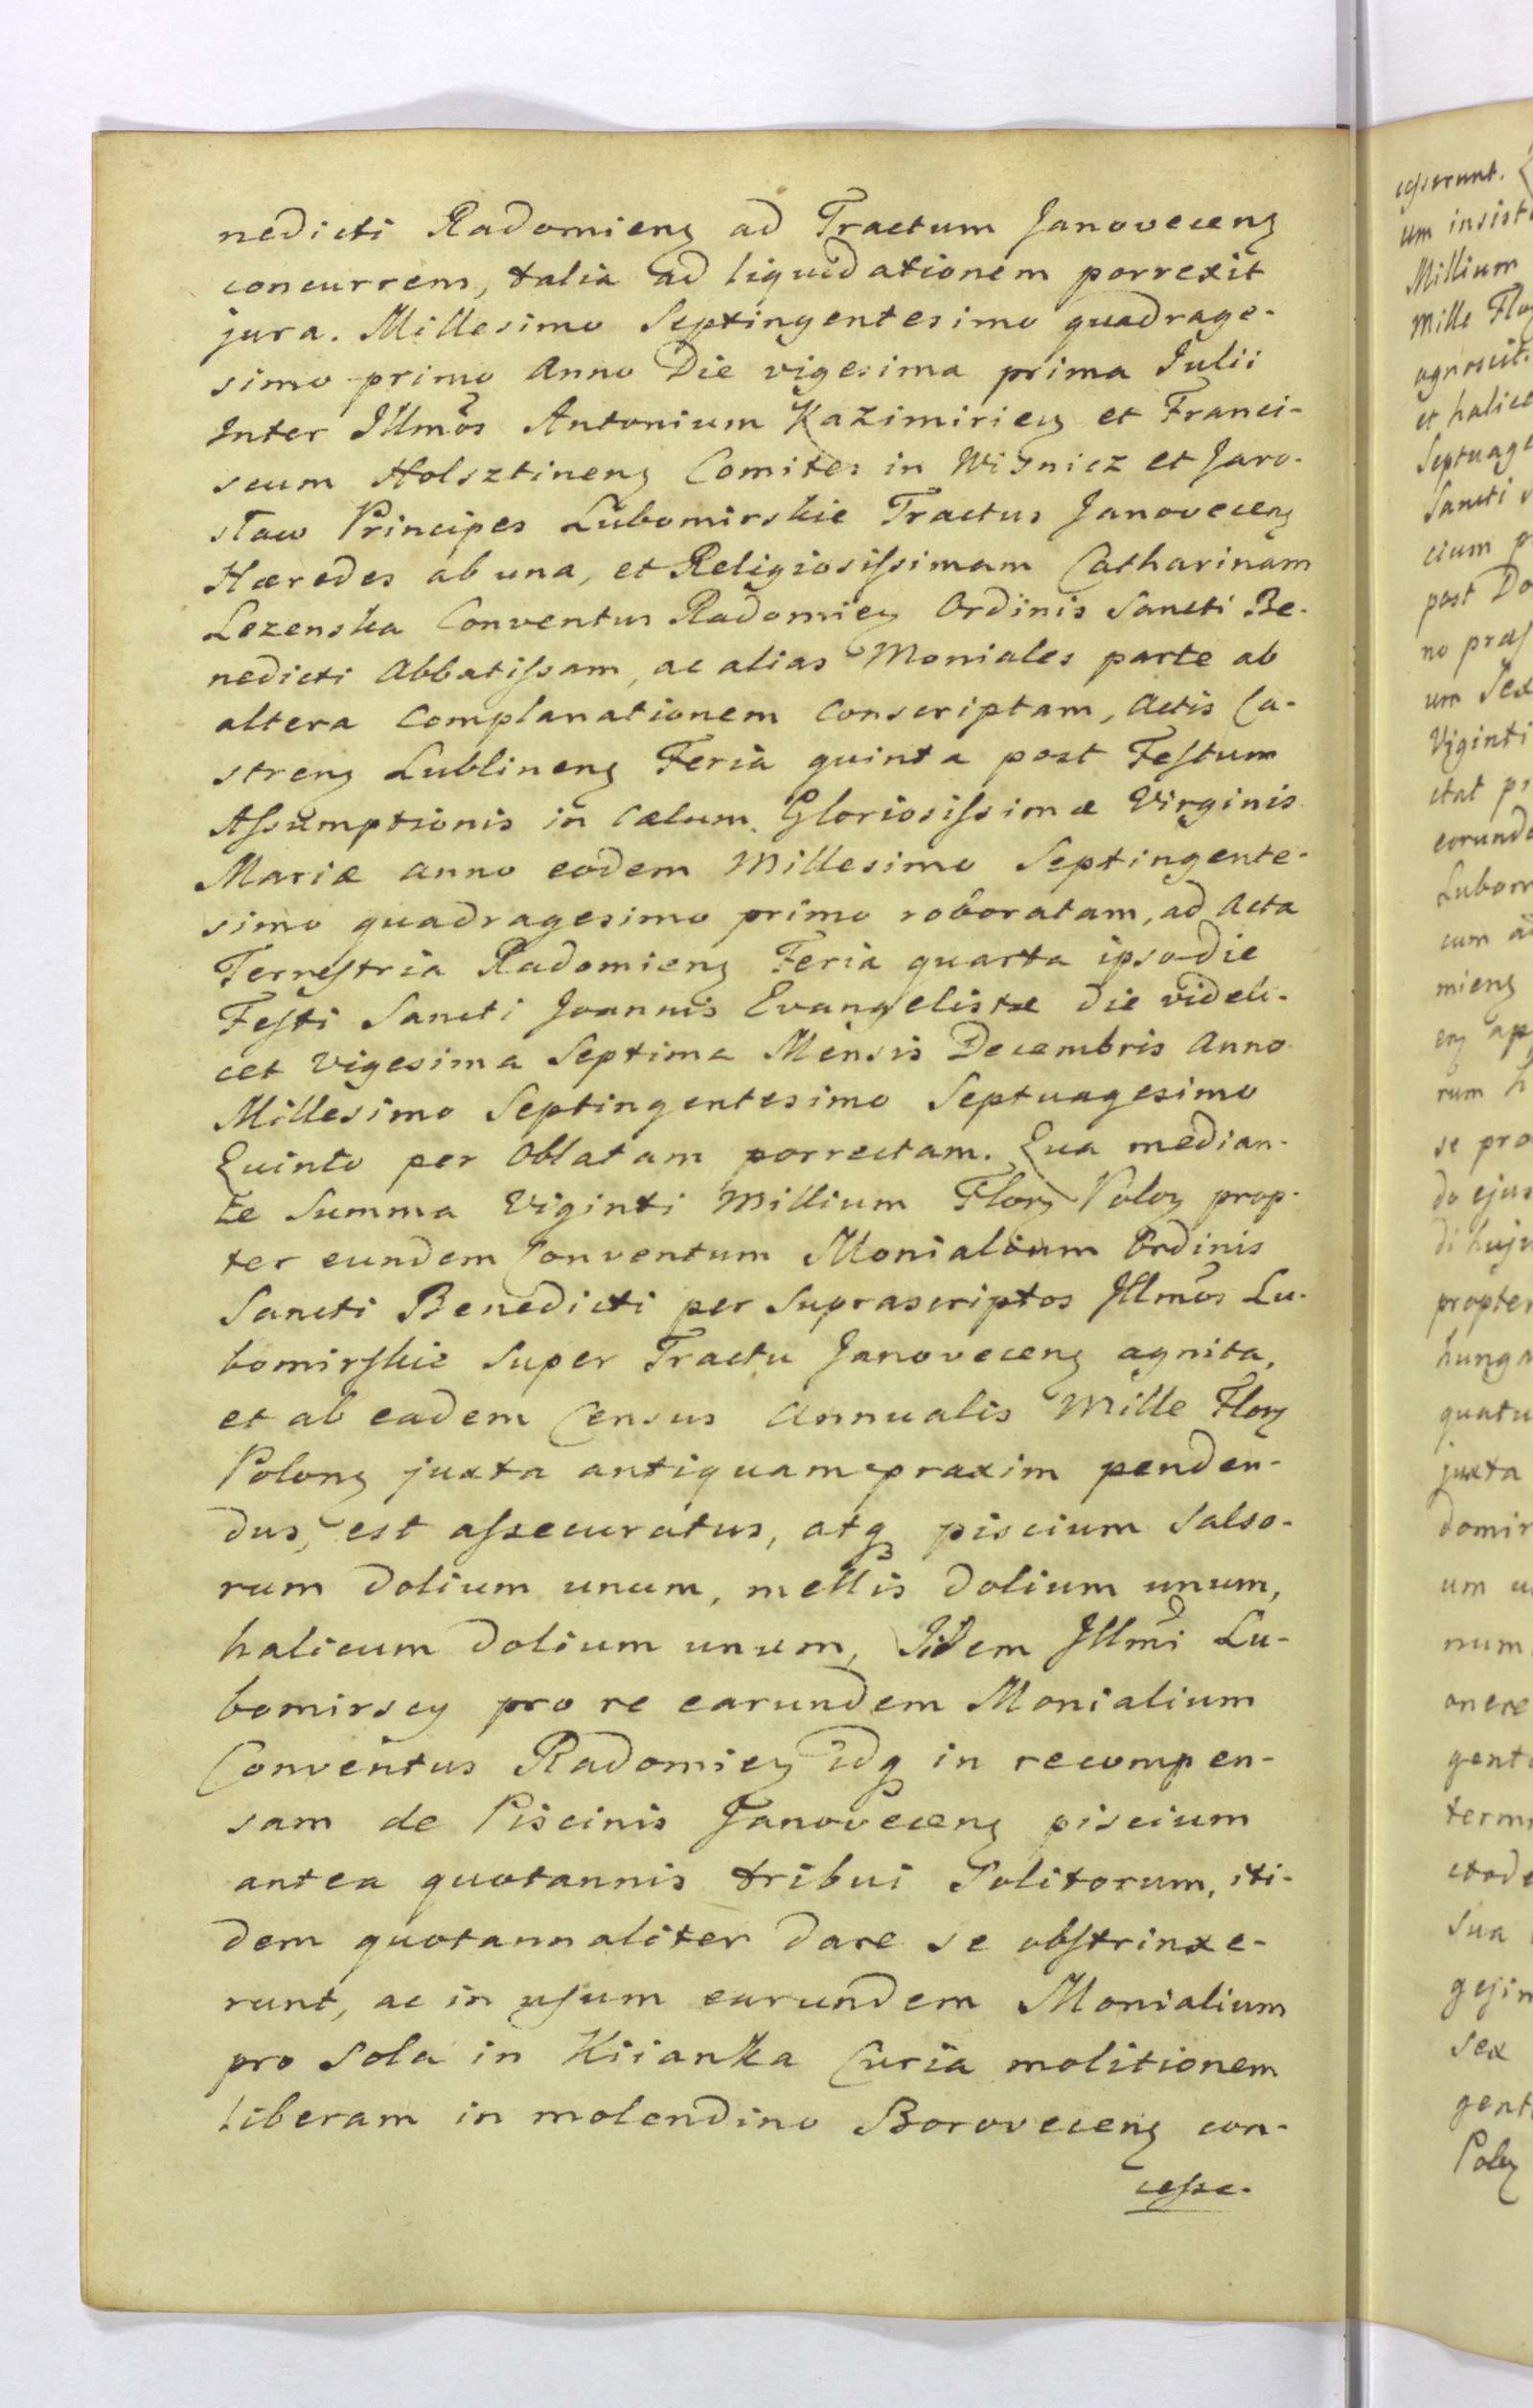 nedicti Radomieng ad Tractum Janoveceng
concurrens, talia ad liquidationem porrexit
jura. Millesimo Septingentesimo quadrage-
simo primo Anno Die vigesima prima Julii
Inter Illmos Antonium Kazimiriey et Franci-
scum Holsztineng Comites in Wisnicz et Jaro-
sław Principes Lubomirskie Tractus Janoveceng
Hæredes ab una, et Religiosissimam Catharinam
Lezenska Conventus Radomiey Ordinis Sancti Be-
nedicti Abbatissam, ac alias Moniales parte ab
altera Complanationem Conscriptam, Actis Ca-
streng Lublineng Feria quinta post Festum
Assumptionis in Cælum Gloriosissimæ Virginis
Mariæ anno eodem Millesimo Septingente-
simo quadragesimo primo roboratam, ad Acta
Terrestria Radomieng Feria quarta ipso die
Festi Sancti Joannis Evangelistæ die videli-
cet vigesima Septima Mensis Decembris Anno
Millesimo Septingentesimo Septuagesimo
Quinto per Oblatam porrectam. Qua median-
te Summa Viginti Millium Flory Poloy prop-
ter eundem Conventum Monialium Ordinis
Sancti Benedicti per Suprascriptos Illmos Lu-
bomirskie Super Tractu Janoveceng agnita,
et ab eadem Census Annualis Mille Flory
Polong juxta antiquam praxim penden-
dus, est assecuratus, atq piscium Salso-
rum Dolium unum, mellis Dolium unum,
halicum Dolium unum, Iidem Illmi Lu-
bomirscy pro re earundem Monialium
Conventus Radomiey idq in recompen-
sam de Piscinis Janoveceng piscium
antea quotannis tribui Solitorum, iti-
dem quotannaliter dare se obstrinxe-
runt, ac in usum earundem Monialium
pro Sola in Kiianka Curia molitionem
liberam in molendino Boroveceng con-
cesse-